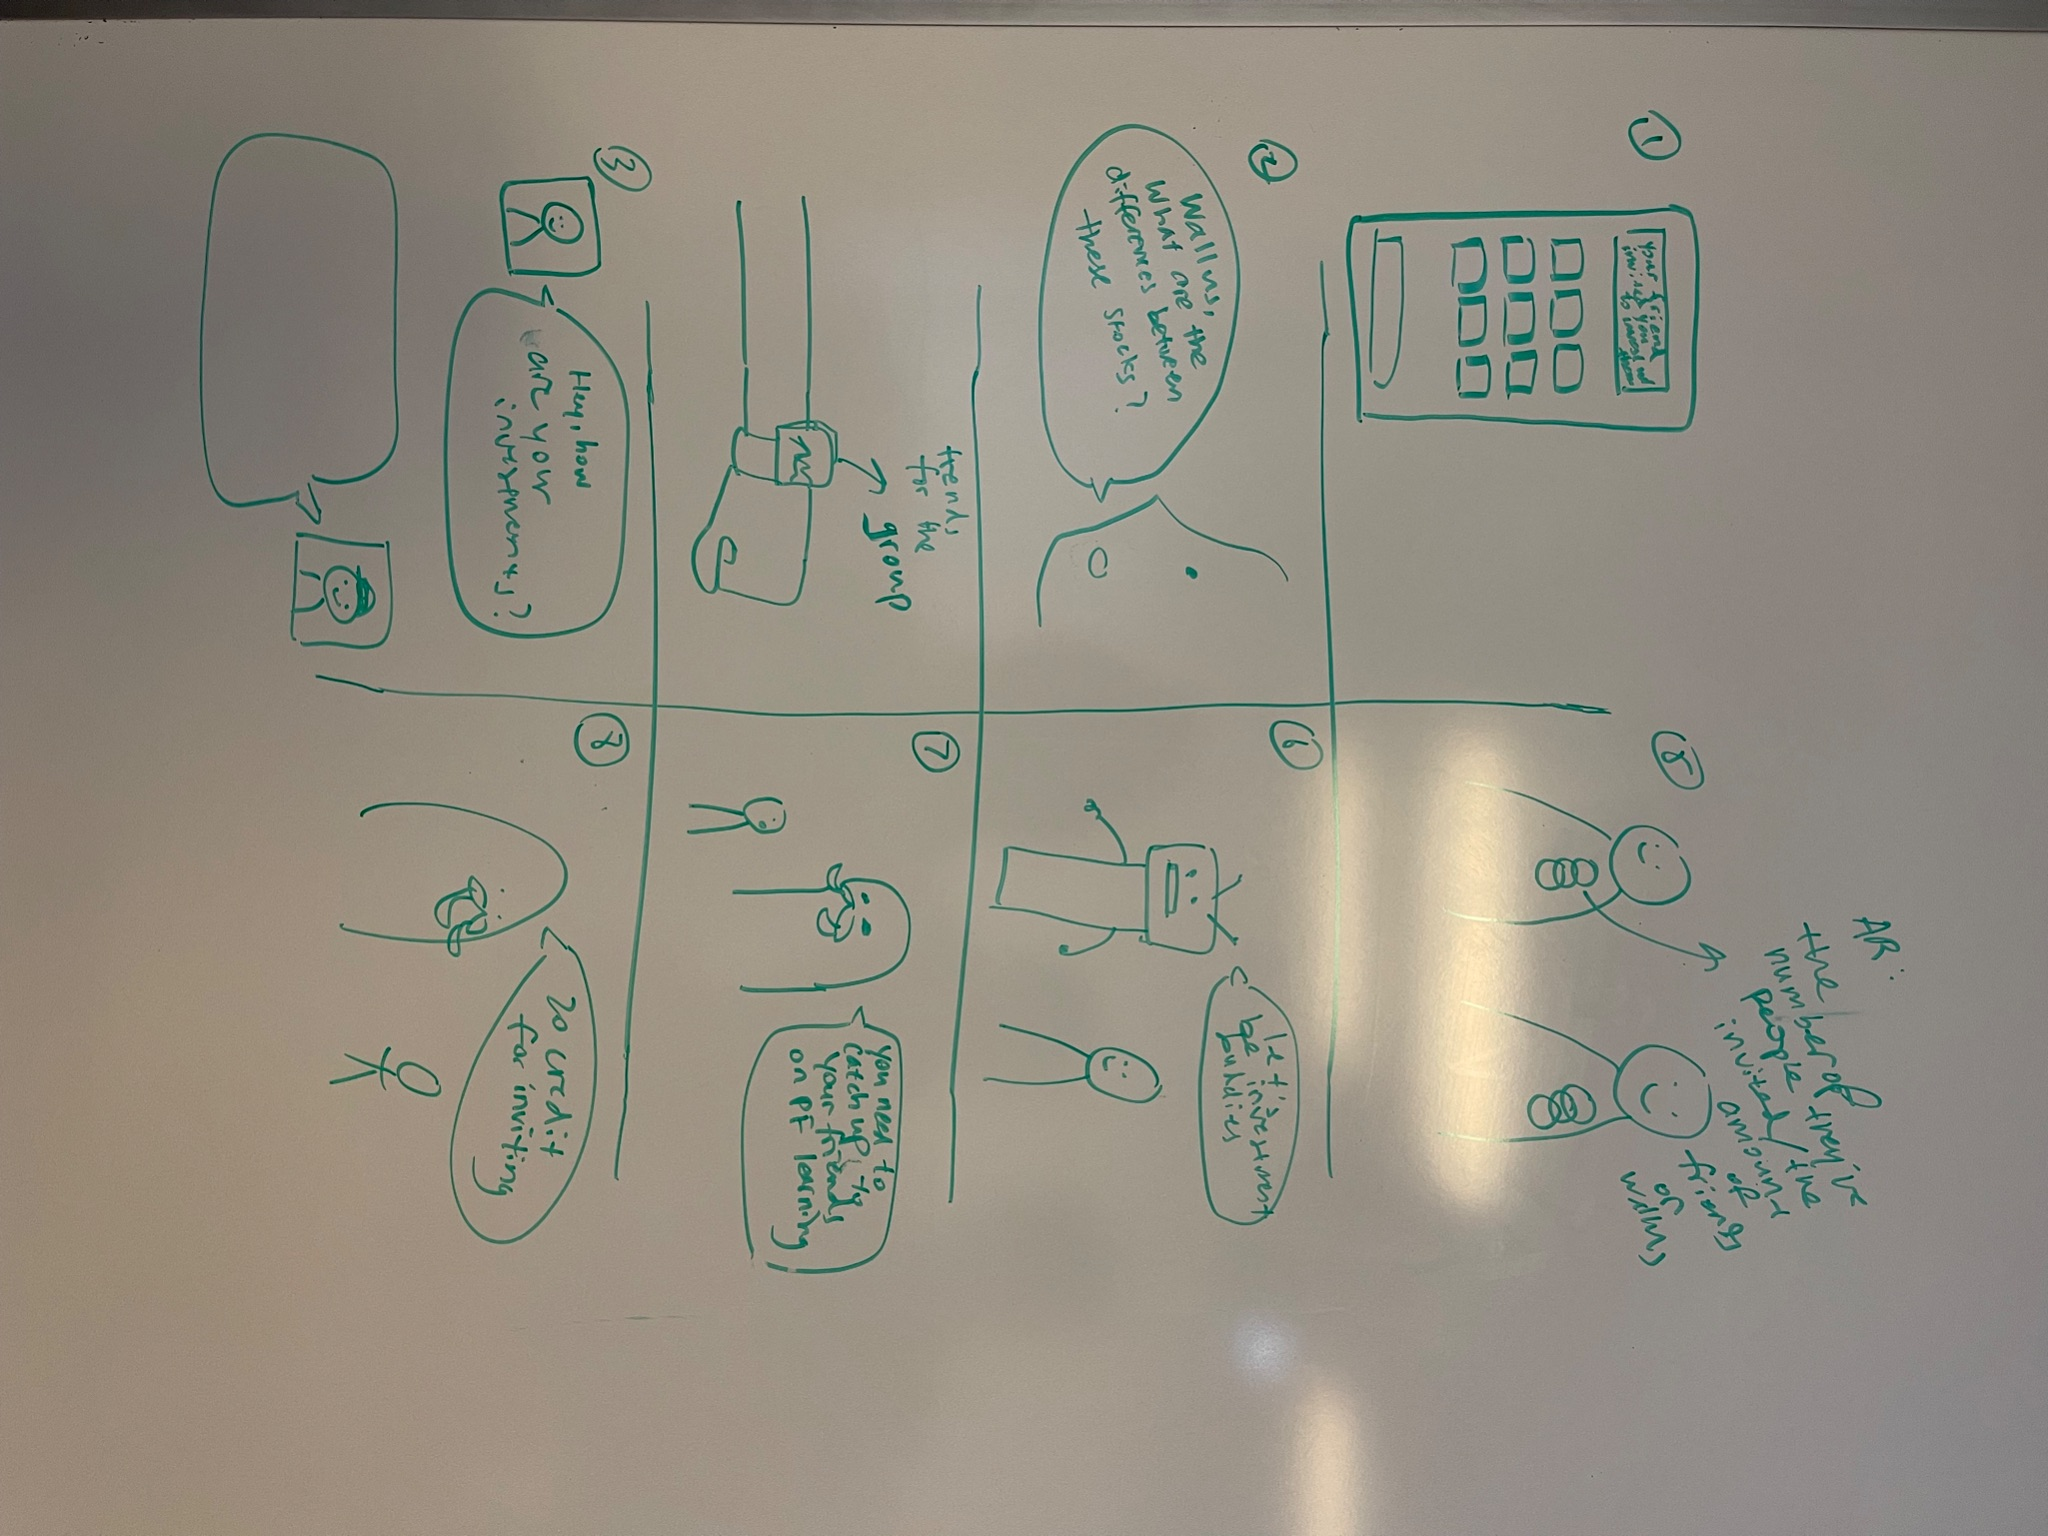 1
your friend
invited you
to invest in
them!
2
Wallus,
What are the
differences between
these stocks?
trends
for the
group
3
Hey, how
are your
investments?
5
AR:
the
number of
people they've
invited/the
amount
of
friends
on
6
let's
be investment
buddies
7
you need to
catch up to
your friends
on PF learning
8
20 credit
for inviting